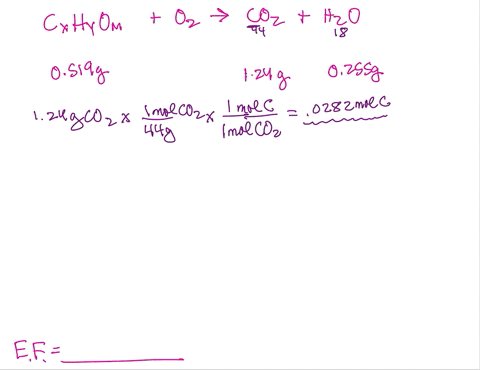 CxHyOm + O2 → CO2 + H2O
44 18
0.519g 1.24g 0.255g
1.24gCO2 × 1molCO2/44g × 1molC/1molCO2 = .0282molC
E.F. = ________